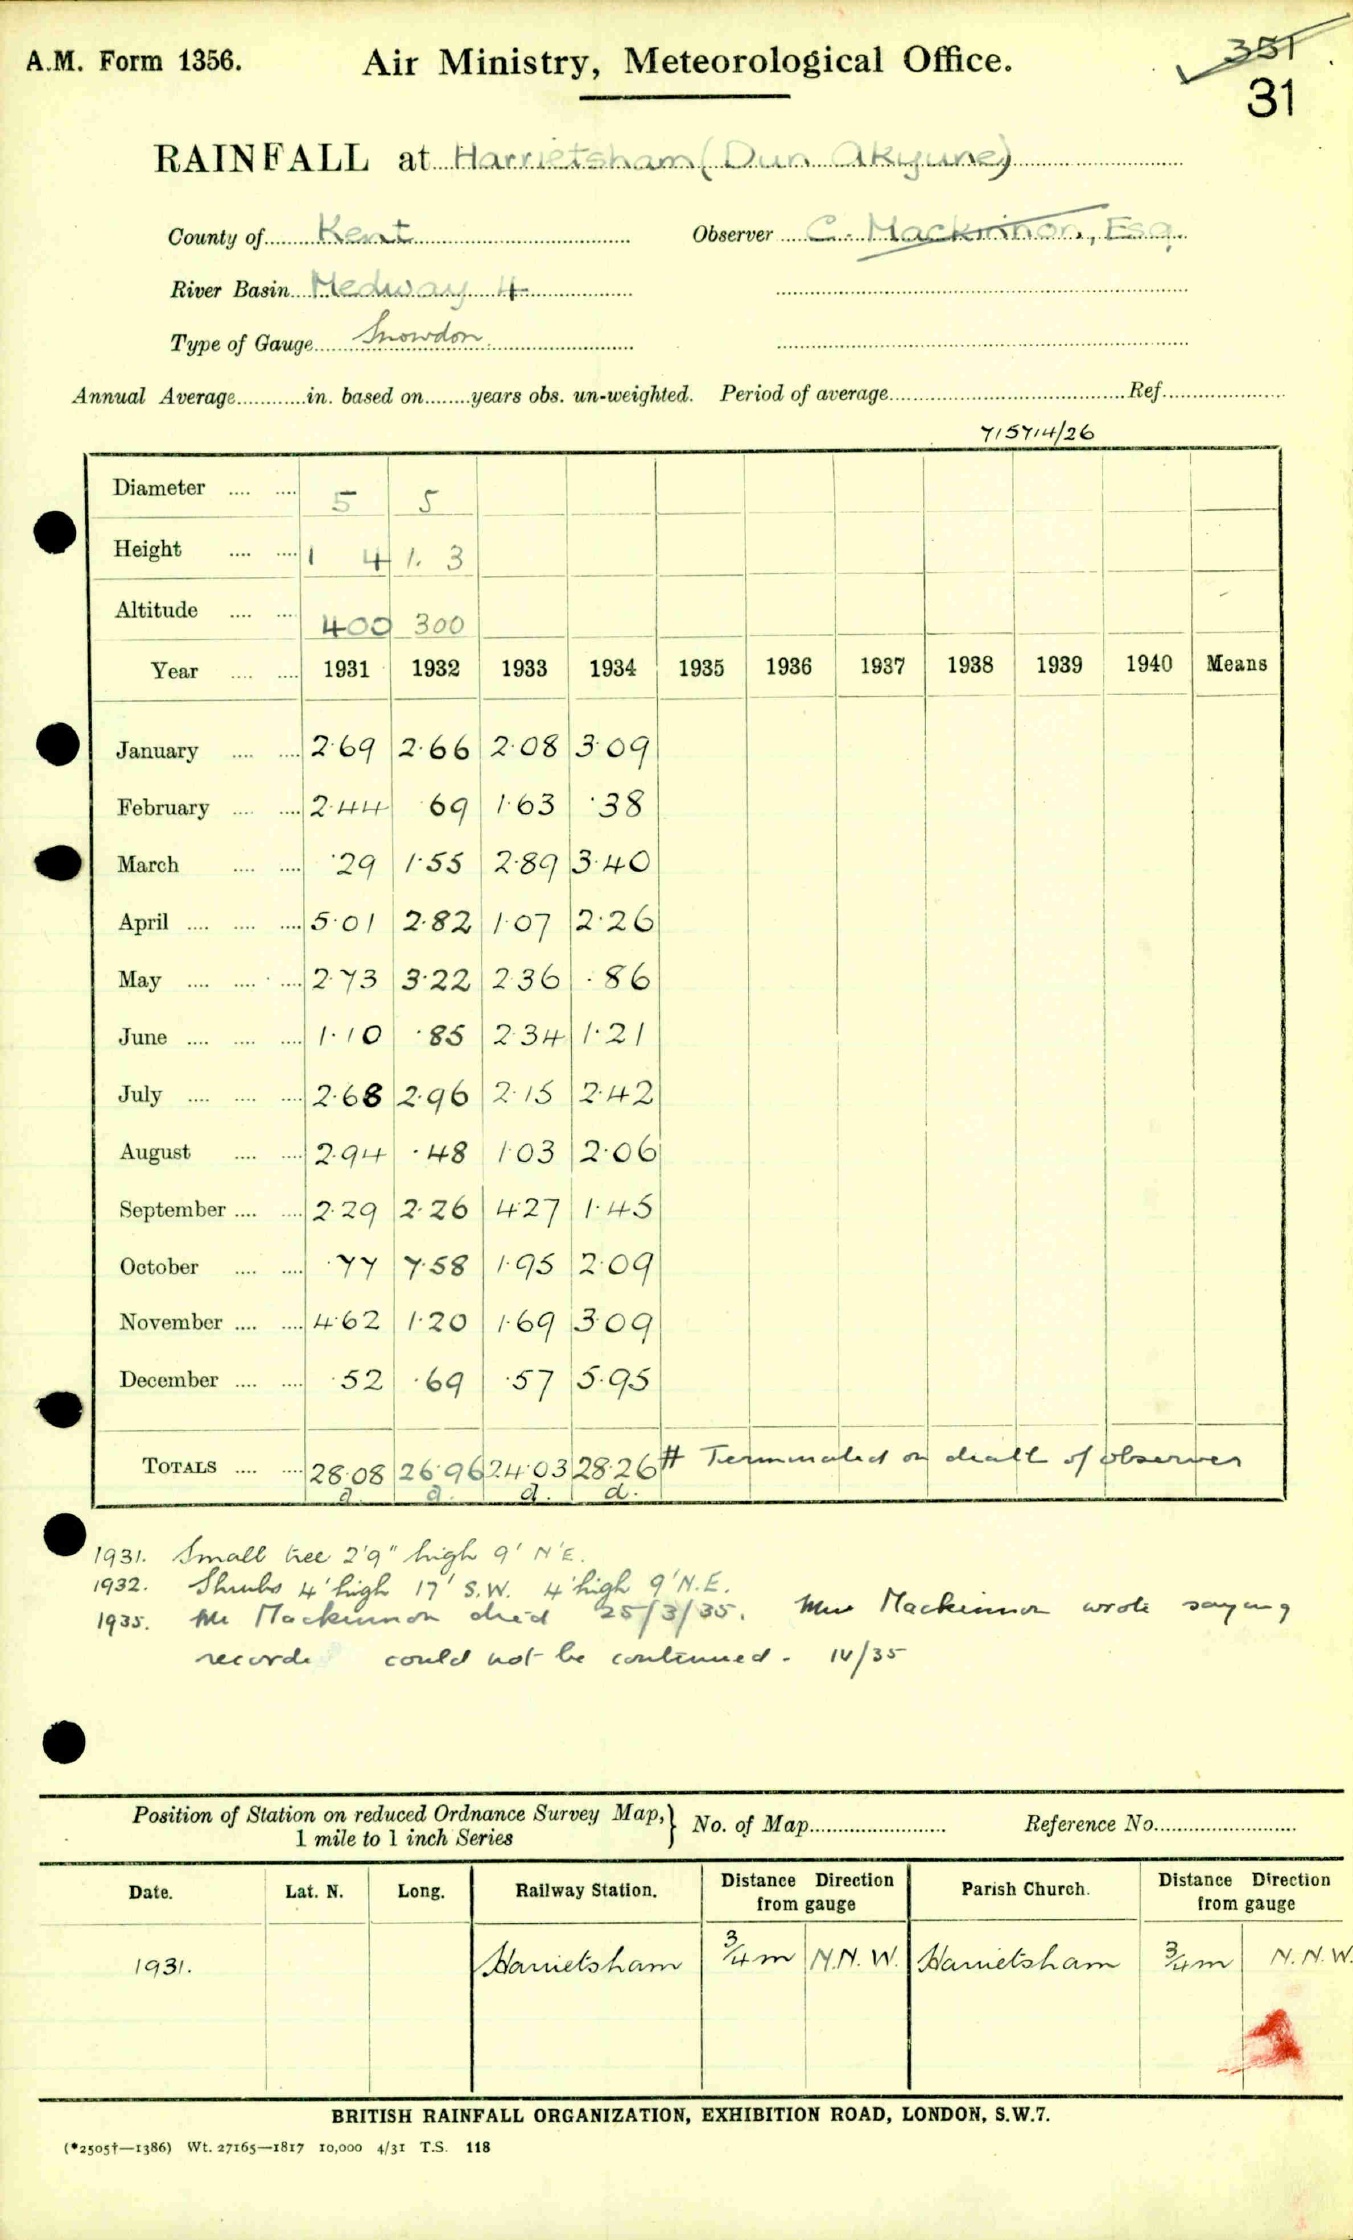 A.M. Form 1356.
Air Ministry, Meteorological Office.
351
31
RAINFALL at Harrietsham (Dun Akyune)
County of Kent
Observer C. Mackinnon, Esq.
River Basin Medway 4
Type of Gauge Snowdon.
Annual Average in. based on years obs. un-weighted. Period of average Ref.
715714/26
Diameter 5 5
Height 1 4 1. 3
Altitude 400 300
Year 1931 1932 1933 1934 1935 1936 1937 1938 1939 1940 Means
January 2·69 2·66 2·08 3·09
February 2·44 69 1·63 ·38
March ·29 1·55 2·89 3·40
April 5·01 2·82 1·07 2·26
May 2·73 3·22 2 36 ·86
June 1·10 ·85 2·34 1·21
July 2·68 2·96 2·15 2·42
August 2·94 ·48 1·03 2·06
September 2·29 2·26 4·27 1·45
October ·77 7·58 1·95 2·09
November 4·62 1·20 1·69 3·09
December ·52 ·69 ·57 5·95
TOTALS 28·08 26·96 24·03 28·26 # Terminated on death of observer
a. a. a. d.
1931. Small tree 2'9" high 9' N'E.
1932. Shrubs 4' high 17' S.W. 4' high 9' N.E.
1935. Mr Mackinnon died 25/3/35. Mrs Mackinnon wrote saying
records could not be continued. IV/35
Position of Station on reduced Ordnance Survey Map,} No. of Map Reference No.
1 mile to 1 inch Series
Date. Lat. N. Long. Railway Station. Distance Direction from gauge Parish Church. Distance Direction from gauge
1931. Harrietsham 3/4 m N.N.W. Harrietsham 3/4 m N.N.W.
BRITISH RAINFALL ORGANIZATION, EXHIBITION ROAD, LONDON, S.W.7.
(*2505†—1386) Wt. 27165—1817 10,000 4/31 T.S. 118